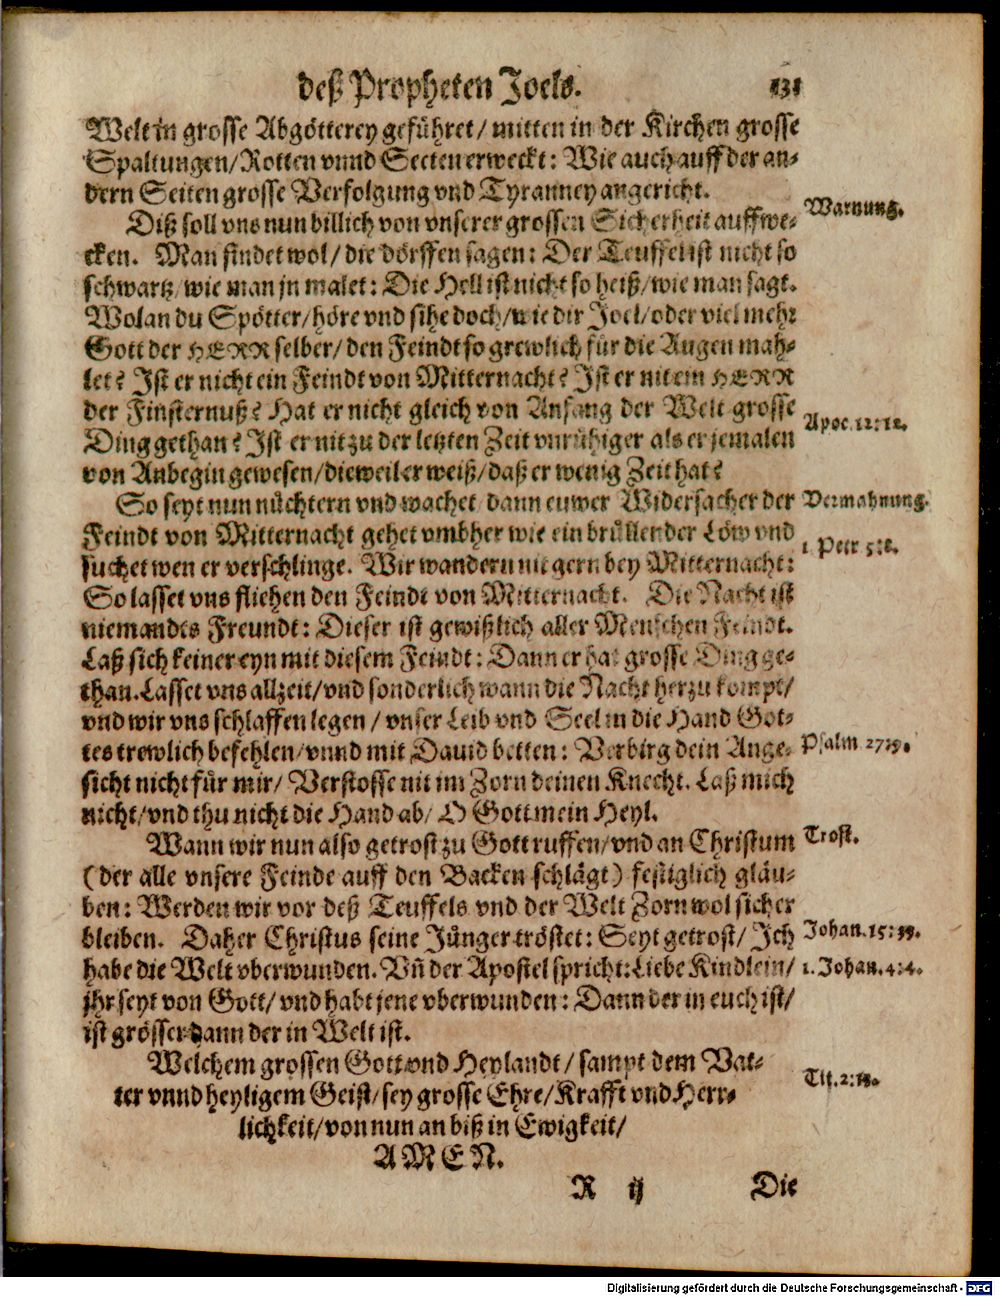 deß Propheten Joels. 131
Welt in grosse Abgötterey geführet/ mitten in der Kirchen grosse
Spaltungen/ Rotten vnnd Secten erweckt: Wie auch auff der an-
dern Seiten grosse Verfolgung vnd Tyranney angericht.
Diß soll vns nun billich von vnserer grossen Sicherheit auffwe- Warnung.
cken. Man findet wol/ die dörffen sagen: Der Teuffel ist nicht so
schwartz/ wie man jn malet: Die Hell ist nicht so heiß/ wie man sagt.
Wolan du Spötter/ höre vnd sihe doch/ wie dir Joel/ oder viel mehr
Gott der HERR selber/ den Feindt so grewlich für die Augen mah-
let? Ist er nicht ein Feindt von Mitternacht? Ist er nit ein HERR
der Finsternuß? Hat er nicht gleich von Anfang der Welt grosse
Ding gethan? Ist er nit zu der letzten Zeit vnrühiger als er jemalen Apoc. 12: 12.
von Anbegin gewesen/ dieweil er weiß/ daß er wenig Zeit hat?
So seyt nun nüchtern vnd wachet/ dann euwer Widersacher der Vermahnung.
Feindt von Mitternacht gehet vmbher wie ein brüllender Löw vnd 1. Petr. 5: 8.
suchet wen er verschlinge. Wir wandern nit gern bey Mitternacht:
So lasset vns fliehen den Feindt von Mitternacht. Die Nacht ist
niemandts Freundt: Dieser ist gewißlich aller Menschen Feindt.
Laß sich keiner eyn mit diesem Feindt: Dann er hat grosse Ding ge-
than. Lasset vns allzeit/ vnd sonderlich wann die Nacht herzu kompt/
vnd wir vns schlaffen legen/ vnser Leib vnd Seel in die Hand Got-
tes trewlich befehlen/ vnnd mit Dauid betten: Verbirg dein Ange- Psalm 27: 9.
sicht nicht für mir/ Verstosse nit im Zorn deinen Knecht. Laß mich
nicht/ vnd thu nicht die Hand ab/ O Gott mein Heyl.
Wann wir nun also getrost zu Gott ruffen/ vnd an Christum Trost.
(der alle vnsere Feinde auff den Backen schlägt) festiglich gläu-
ben: Werden wir vor deß Teuffels vnd der Welt Zorn wol sicher
bleiben. Daher Christus seine Jünger tröstet: Seyt getrost/ Ich Johan. 15: 33.
habe die Welt vberwunden. Vñ der Apostel spricht: Liebe Kindlein/ 1. Johan. 4: 4.
jhr seyt von Gott/ vnd habt jene vberwunden: Dann der in euch ist/
ist grösser dann der in Welt ist.
Welchem grossen Gott vnd Heylandt/ sampt dem Vat-
ter vnnd heyligem Geist/ sey grosse Ehre/ Krafft vnd Herr- Tit. 2: 13.
lichkeit/ von nun an biß in Ewigkeit/
AMEN.
R ij Die
Digitalisierung gefördert durch die Deutsche Forschungsgemeinschaft - DFG